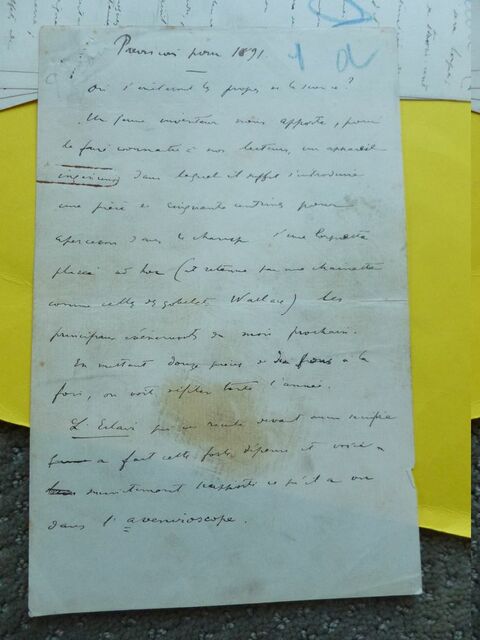 Prévisions pour 1891
1 d
Où s'arrêteront les progrès de la science ?
Un jeune inventeur nous apporte, pour
le faire connaître à nos lecteurs, un appareil
ingénieux dans lequel il suffit d'introduire
une pièce de cinquante centimes pour
apercevoir dans le champ d'une lorgnette
placée ad hoc (et retenue par une chainette
comme celle des gobelets Wallace) les
principaux événements du mois prochain.
En mettant douze pièces de dix francs à la
fois, on voit défiler toute l'année.
L'Eclair qui ne recule devant aucun
a fait cette forte dépense et voici
ce qu'il a vu
dans l'aveniroscope.